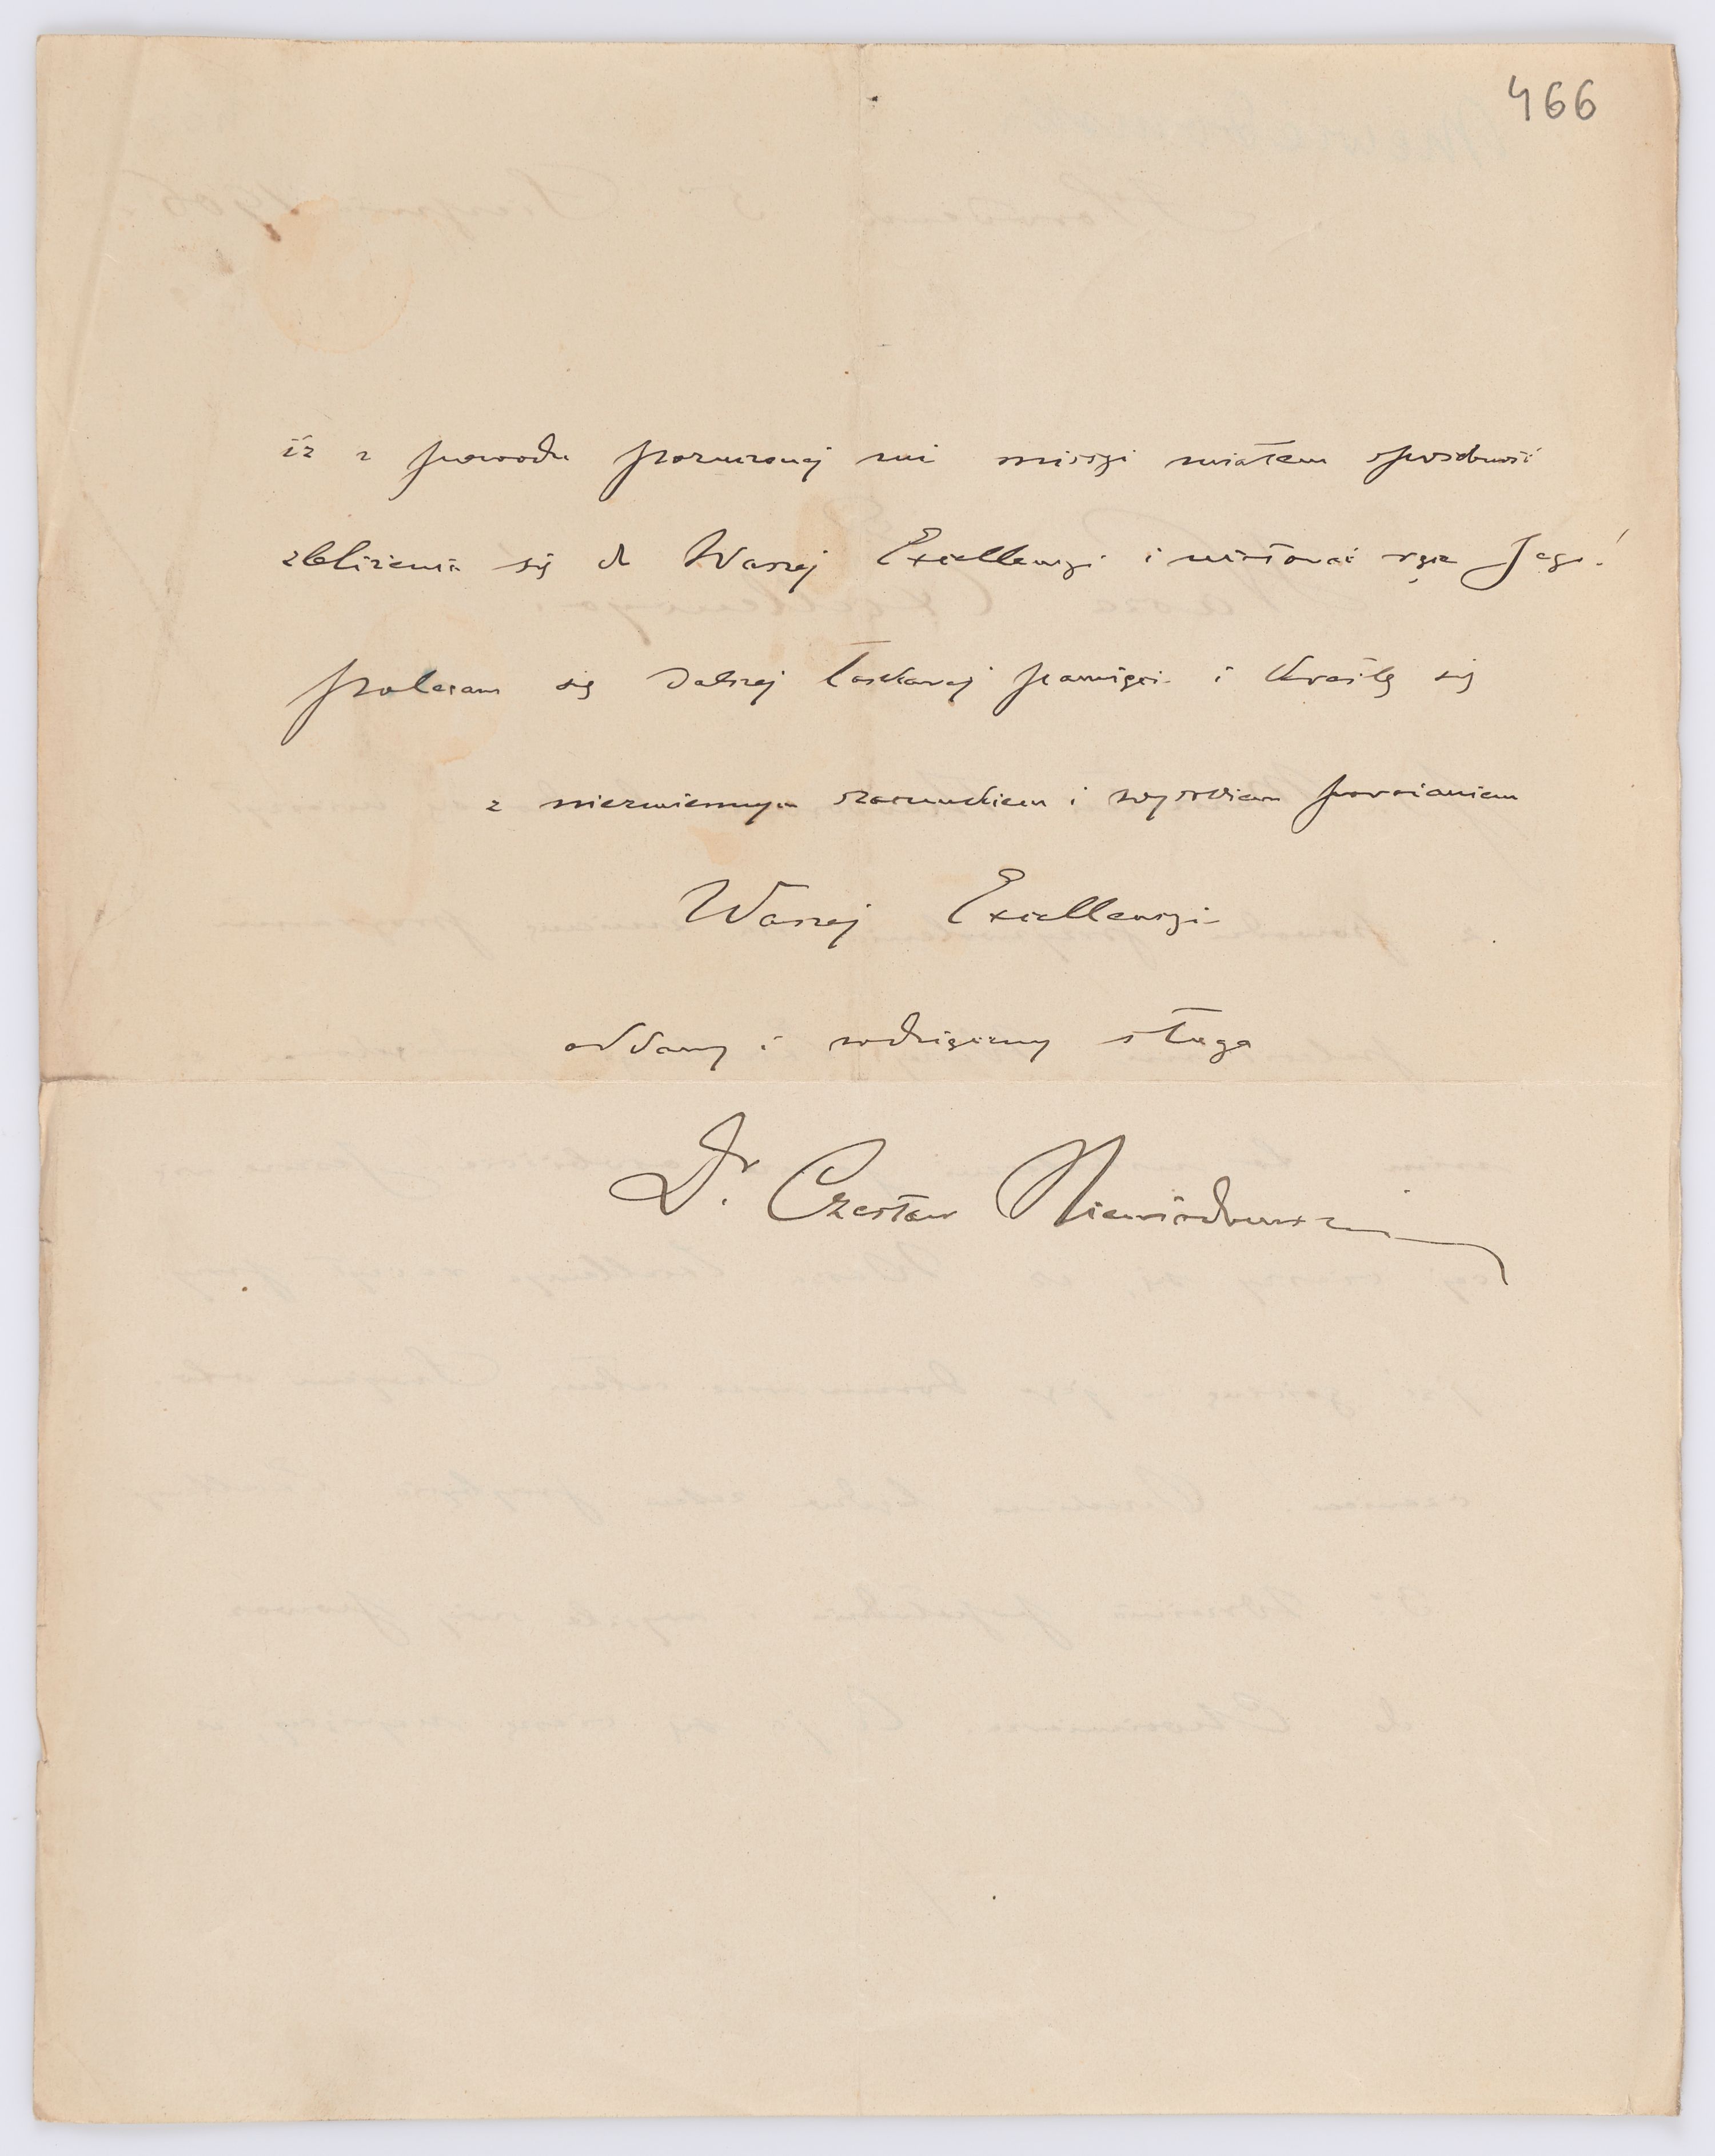 466
iż z powodu poruczonej mi missyi miałem sposobność
zbliżenia się do Waszej Excellencyi i uścisnąć ręce Jego!
polecam się dalszej łaskawej pamięci i kreślę się
z niezmiennym szacunkiem i wysokiem poważaniem
Waszej Excellencyi
oddany i wdzięczny sługa
Dr. Czesław Niewiadomski